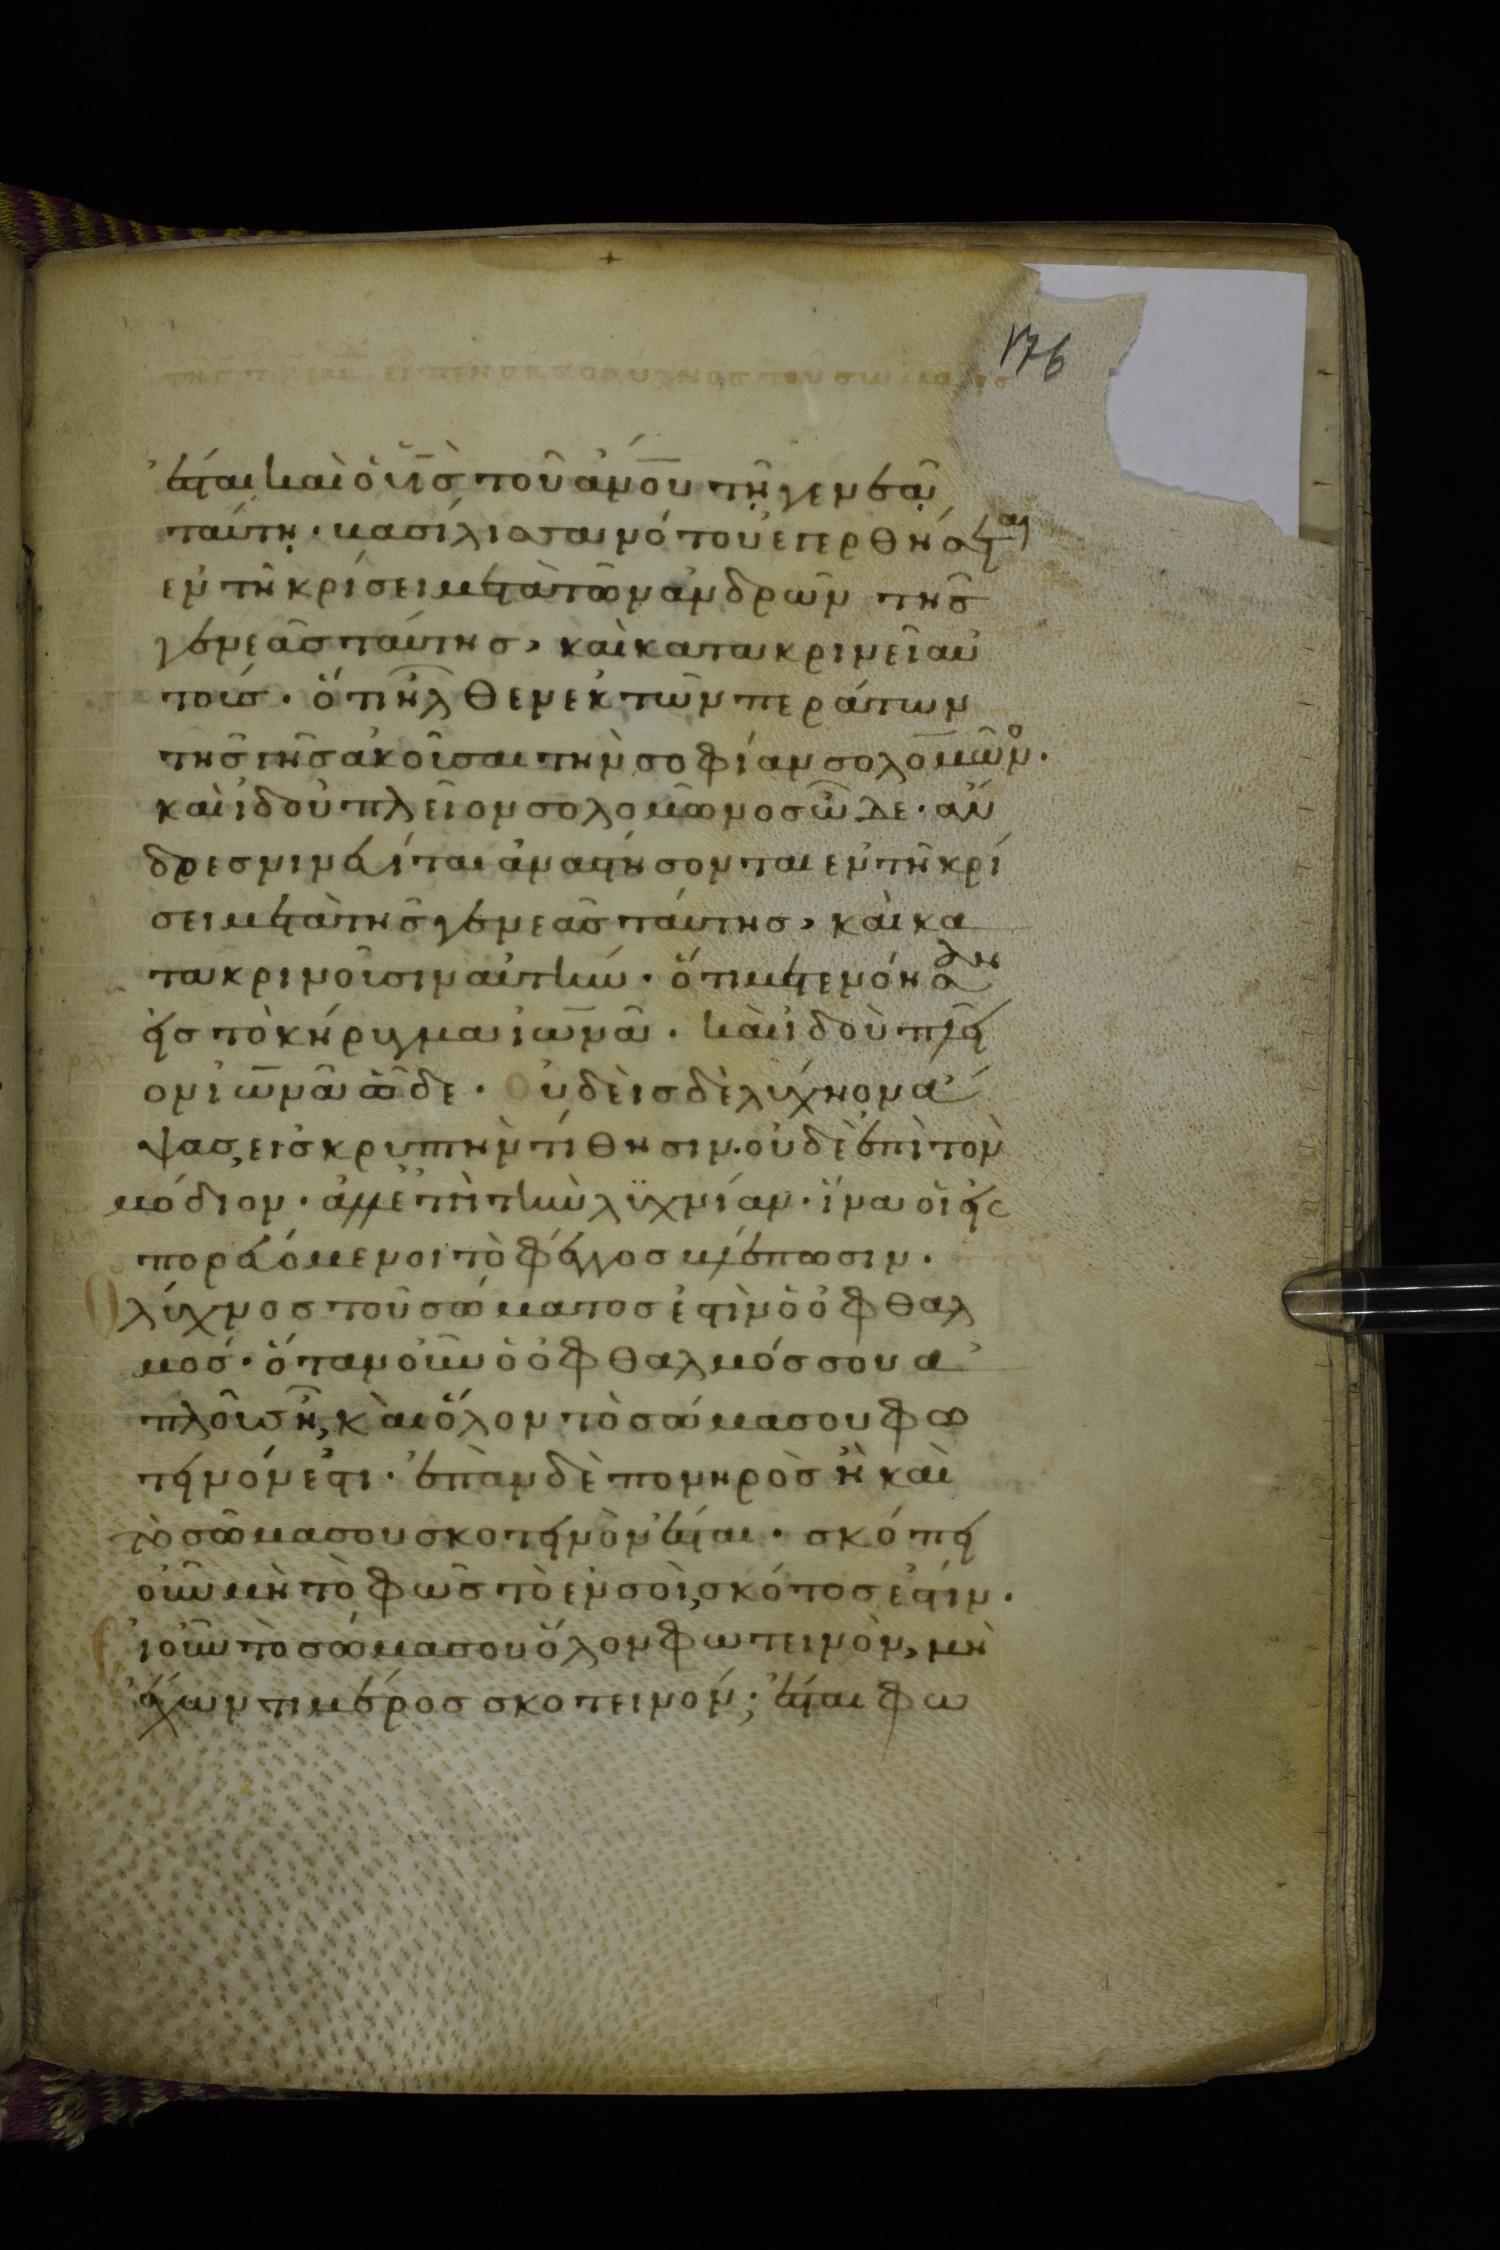 176
ἔσται καὶ ὁ υ̅ς̅ τοῦ α̅ν̅ο̅υ̅ τῇ γενεᾷ
ταύτῃ · βασίλισσα νότου ἐγερθήσεται
ἐν τῆ κρίσει μετὰ τῶν ἀνδρῶν τῆς
γενεᾶς ταύτης, καὶ κατακρινεῖ αὐ
τούς · ὅτι ἦλθεν ἐκ τῶν περάτων
τῆς γῆς ἀκοῦσαι τὴν σοφίαν σολομῶνο ·
καὶ ἰδοὺ πλεῖον σολομῶνος ὧδε · ἄν
δρες νινευίται ἀναστήσονται ἐν τῆ κρί
σει μετὰ τῆς γενεᾶς ταύτης, καὶ κα
τακρινοῦσιν αὐτήν · ὅτι μετενόησαν
εἰς τὸ κήρυγμα ἰωνᾶ · καὶ ἰδοὺ πλεῖ
ον ἰωνᾶ ὧδε · Οὐδεὶς δὲ λύχνον ἅ
ψας, εἰς κρυπτὴν τίθησιν · οὐδὲ ἐπὶ τὸν
μόδιον · ἀλλ' ἐπὶ τὴν λυχνίαν · ἵνα οἱ εἰς
πορευόμενοι τὸ φέγγος βλέπωσιν ·
Ὁ λύχνος τοῦ σώματος ἐστὶν ὁ ὀφθαλ
μός · ὅταν οὖν ὁ ὀφθαλμός σου ἁ
πλοῦς ἦ, καὶ ὅλον τὸ σώμα σου φω
τεινόν ἐστι · ἐπὰν δὲ πονηρὸς ἦ καὶ
τὸ σῶμα σου σκοτεινὸν ἔσται · σκόπει
οὖν μὴ τὸ φῶς τὸ ἐν σοὶ, σκότος ἐστίν ·
Εἰ οὖν τὸ σώμα σου ὅλον φωτεινὸν, μὴ
ἔχων τι μέρος σκοτεινόν ; ἔσται φω